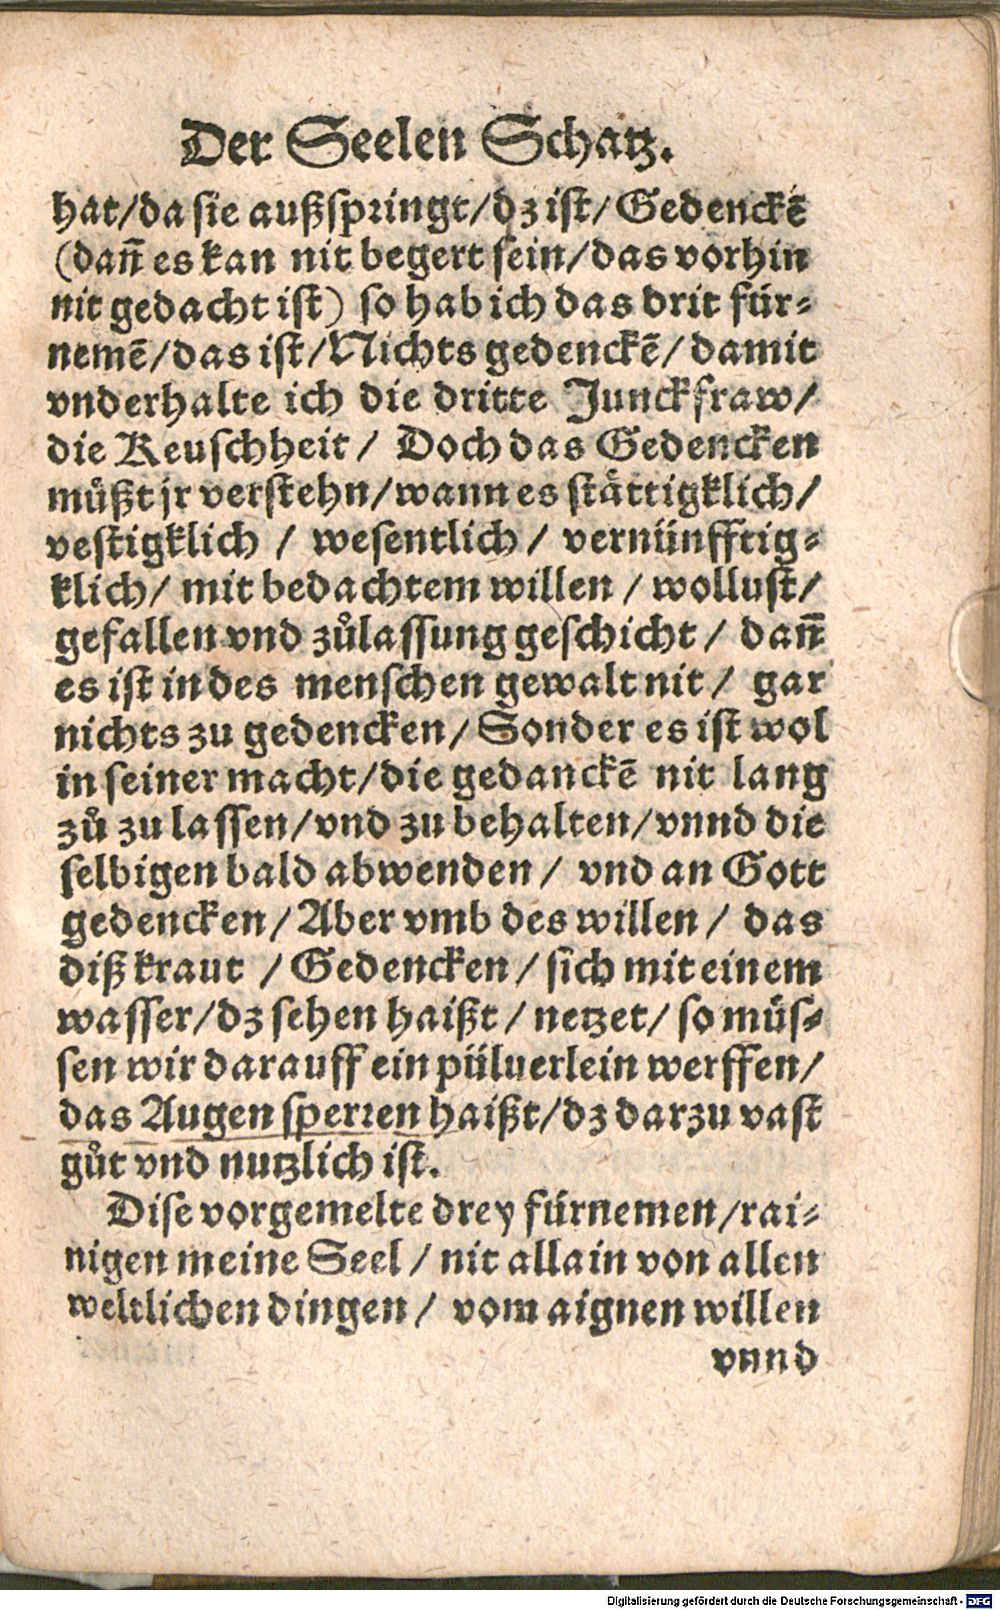 Der Seelen Schatz.
hat/da sie außspringt/dz ist/Gedenckẽ
(dañ es kan nit begert sein/das vorhin
nit gedacht ist) so hab ich das drit für-
nemẽ/das ist/Nichts gedenckẽ/damit
vnderhalte ich die dritte Junckfraw/
die Keuschheit/ Doch das Gedencken
müßt jr verstehn/wann es stättigklich/
vestigklich / wesentlich/ vernünfftig-
klich/ mit bedachtem willen / wollust/
gefallen vnd zůlassung geschicht/ dañ
es ist in des menschen gewalt nit/ gar
nichts zu gedencken/Sonder es ist wol
in seiner macht/die gedanckẽ nit lang
zů zu lassen/vnd zu behalten/vnnd die
selbigen bald abwenden/ vnd an Gott
gedencken/Aber vmb des willen/ das
diß kraut /Gedencken/sich mit einem
wasser/dz sehen haißt/netzet/so müs-
sen wir darauff ein püluerlein werffen/
das Augen sperren haißt/dz darzu vast
gůt vnd nutzlich ist.
Dise vorgemelte drey fürnemen/rai-
nigen meine Seel/nit allain von allen
weltlichen dingen/ vom aignen willen
vnnd
Digitalisierung gefördert durch die Deutsche Forschungsgemeinschaft - DFG